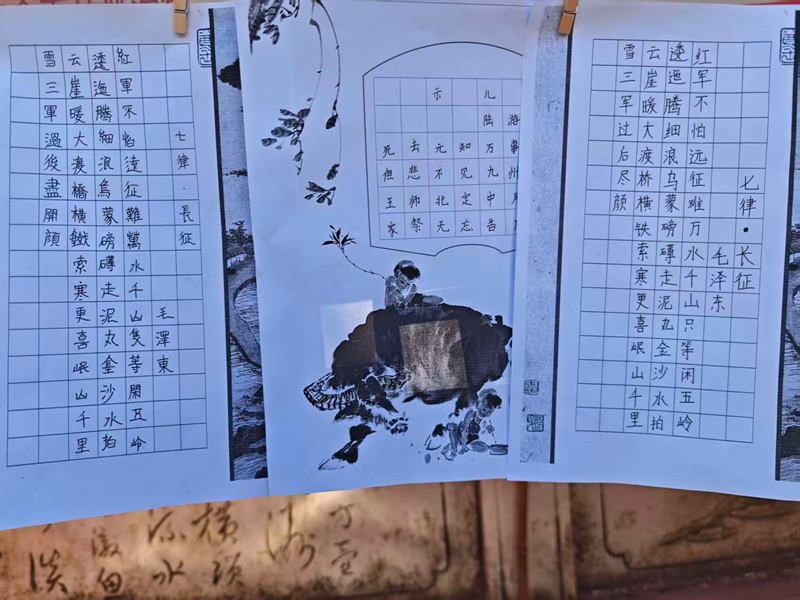 七律·長征
毛澤東
紅軍不怕達征難萬水千山隻等閑五岭
逶迤騰細浪烏蒙磅礴走泥丸金沙水拍
云崖暖大渡橋橫鐵索寒更喜岷山千里
雪三軍過後盡開顏
示儿
陆游
死去元知万事
但悲不见九州
王师北定中
家祭无忘告
七律·长征
毛泽东
红军不怕远征难万水千山只等闲五岭
逶迤腾细浪乌蒙磅礴走泥丸金沙水拍
云崖暖大渡桥横铁索寒更喜岷山千里
雪三军过后尽颜